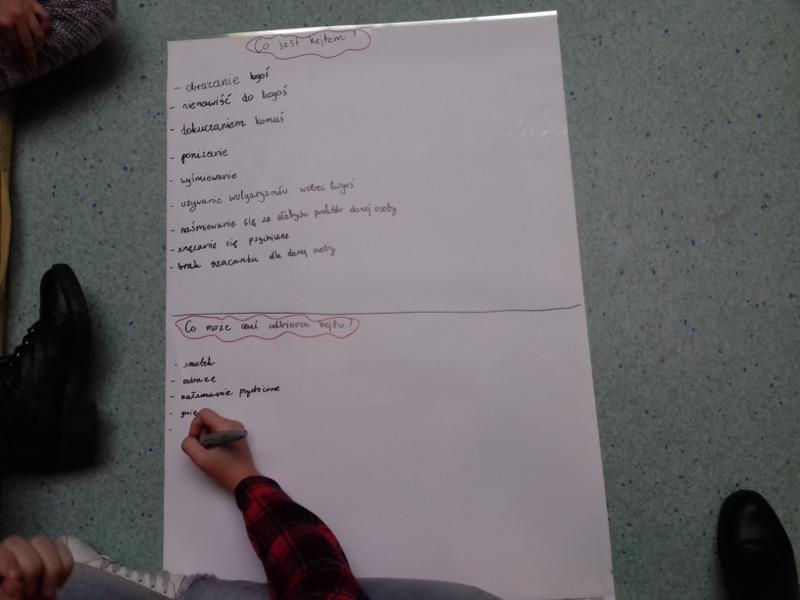 Co jest hejtem?
- obrażanie kogoś
- nienawiść do kogoś
- dokuczaniem komuś
- poniżanie
- wyśmiewanie
- używanie wulgaryzmów wobec kogoś
- naśmiewanie się ze słabych punktów danej osoby
- znęcanie się psychiczne
- brak szacunku dla danej osoby
Co może czuć odbiorca hejtu?
- smutek
- odrazę
- załamanie psychiczne
- gnie
-